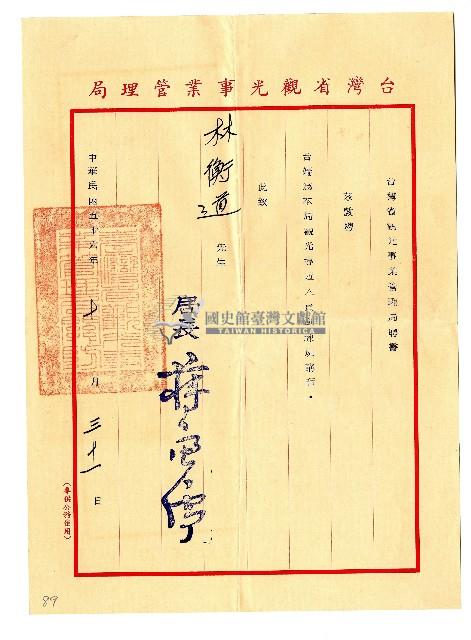 台灣省觀光事業管理局
台灣省觀光事業管理局聘書
茲敦聘
台端為本局觀光
此致
林衡道 先生
局長
中華民國五十六年十月三十一日
(專供公務使用)
國史館臺灣文獻館
TAIWAN HISTORICA
89